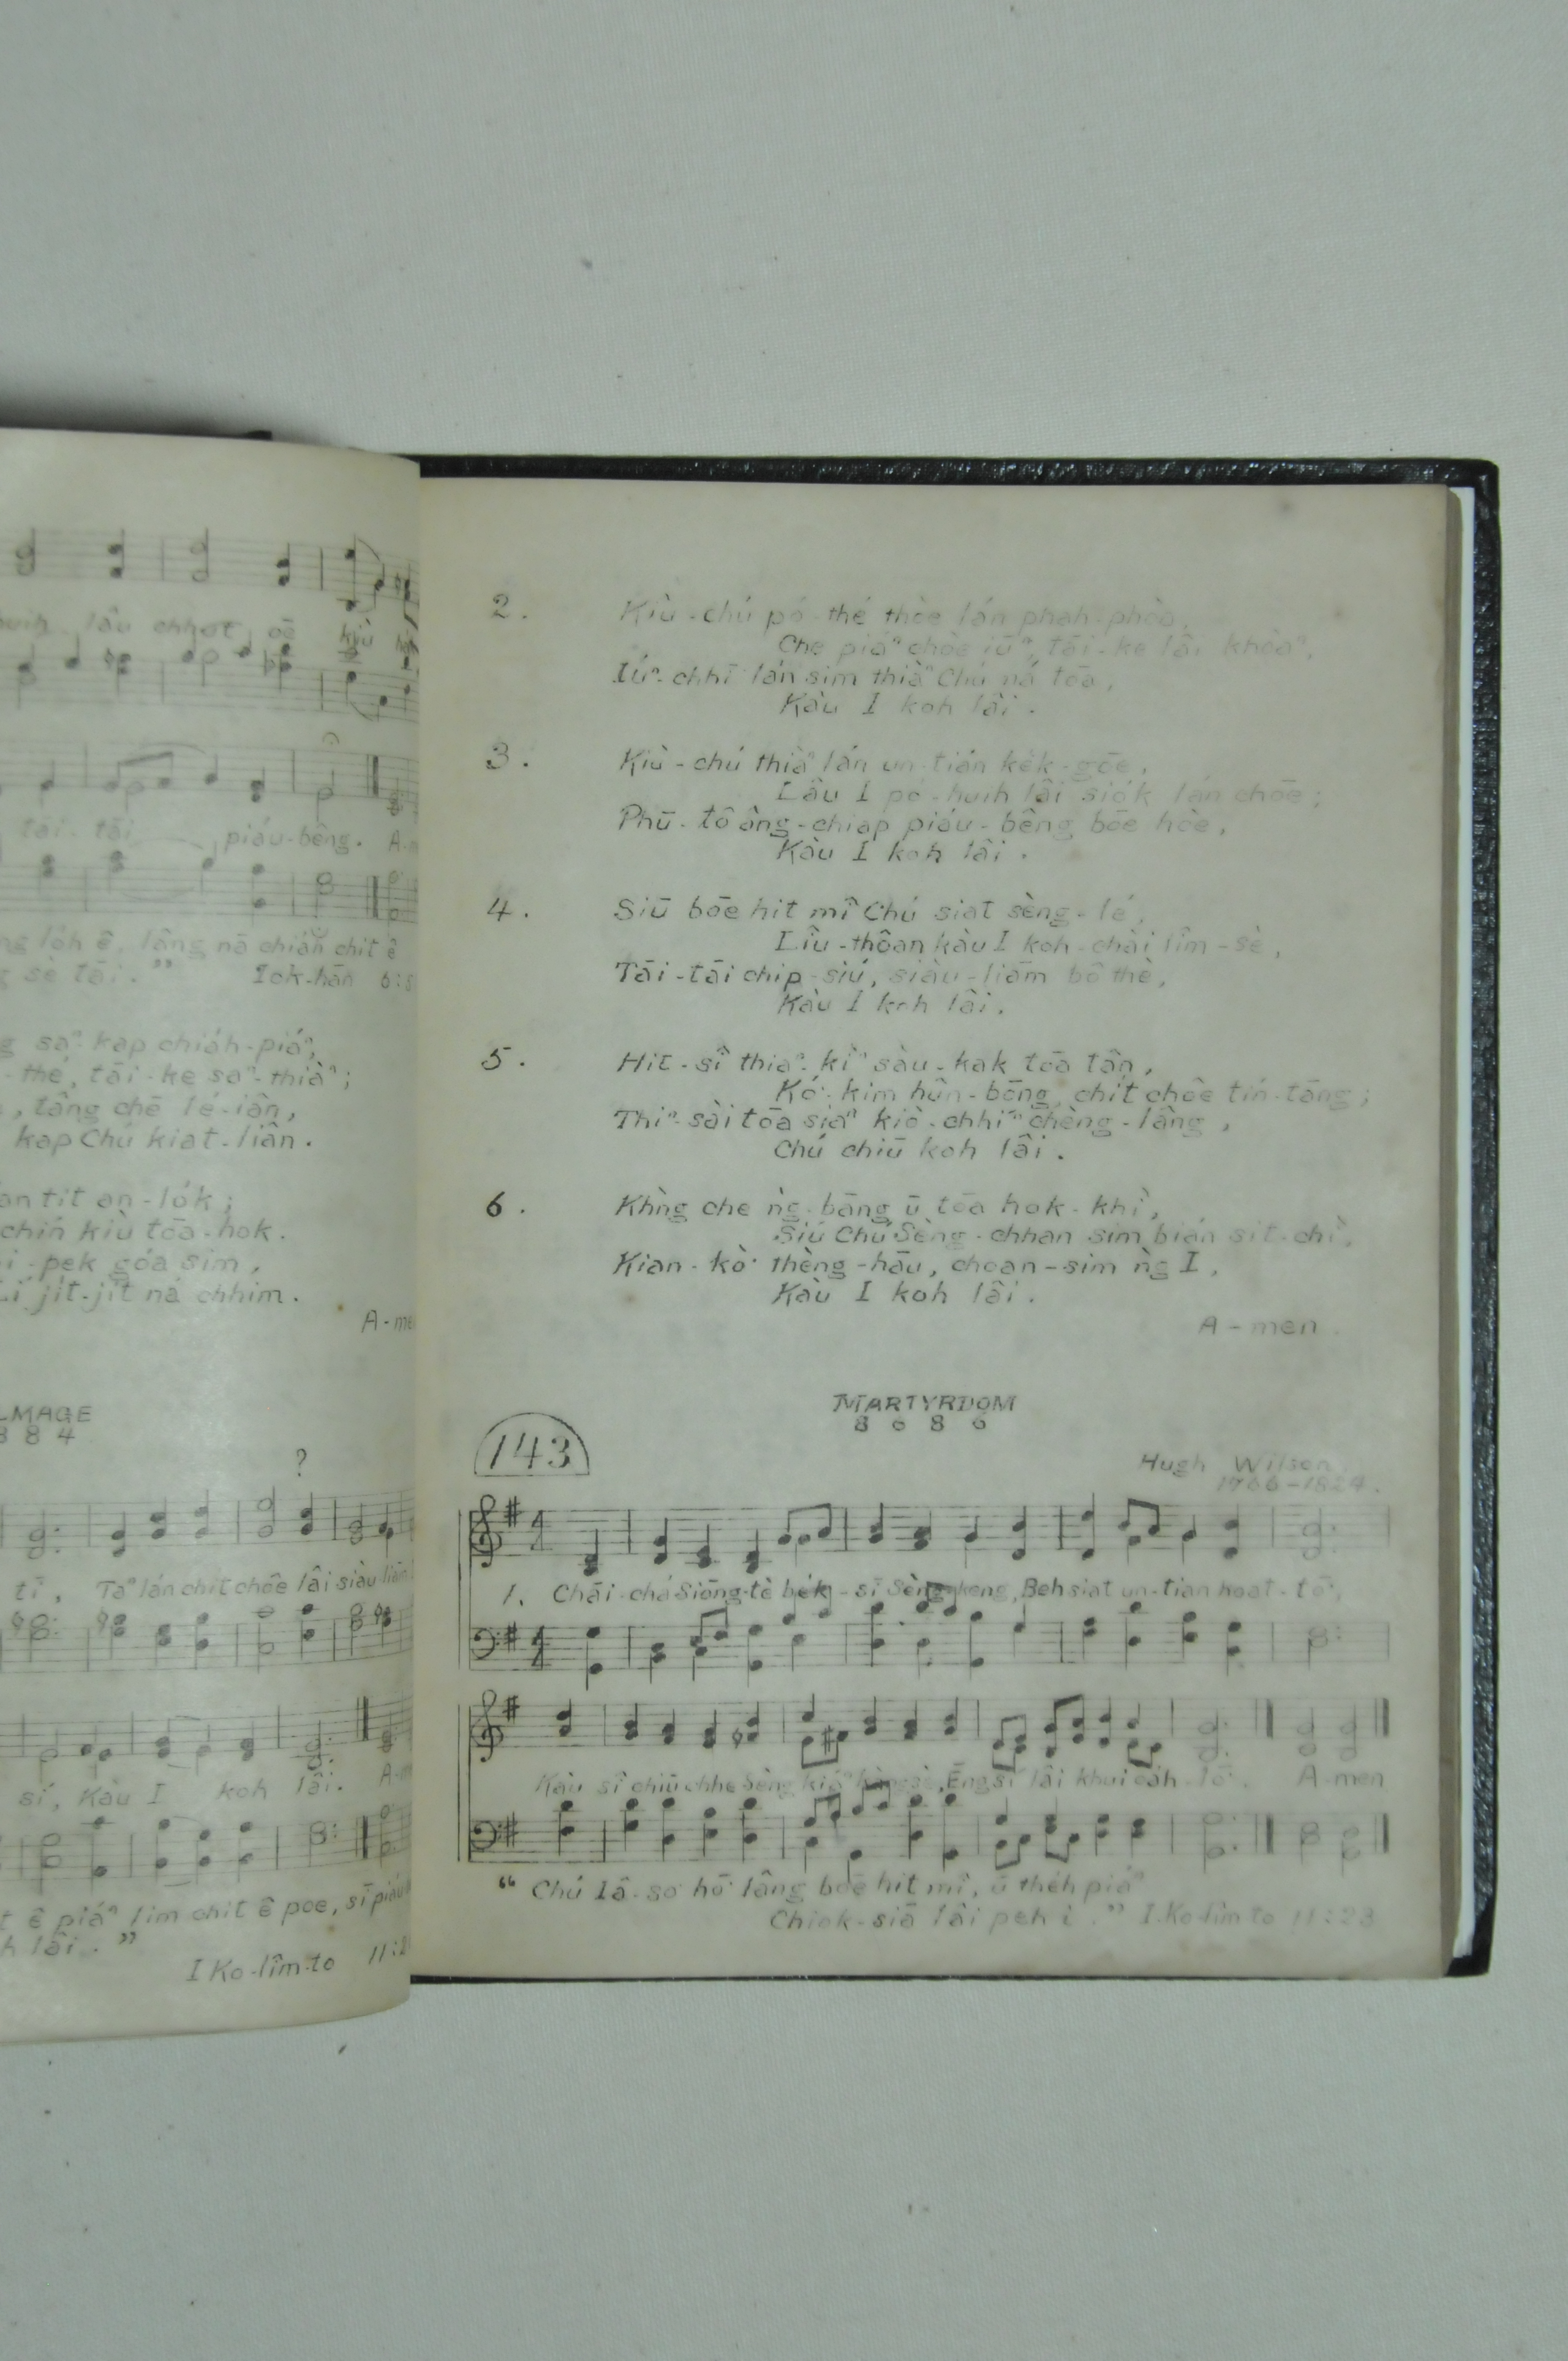 lâu chhut
tāi - tāi piáu-bêng. A-
lóh ê, lâng nā chiáh chit ê
sè tāi." Iok-hān 6:5
saⁿ-kap chiáh-piáⁿ,
-thé, tāi-ke saⁿ-thiàⁿ;
, tâng chē lé-iân,
kap Chú kiat-liân.
tit an-lók;
chín kiù tōa-hok.
-pek góa sim,
Lí jit-jit ná chhim.
A-me
LMAGE
8 8 4
?
tī, Taⁿ lán chit chōe lâi siàu-liām
sí, Kàu I koh lâi. A-m
ê piáⁿ lim chit ê poe, sī piáu
h lâi."
I Ko-lîm-to 11:2
2. Kiù-chú pó-thé thòe lán phah-phòa,
Che piáⁿ chòe iūⁿ, tāi-ke lâi khòaⁿ,
Iúⁿ-chhī lán sim thiàⁿ Chú ná tōa,
Kàu I koh lâi.
3. Kiù-chú thiàⁿ lán un-tián kèk-gōe,
Lâu I pó-huih lâi siók lán chōe;
Phū-tô âng-chiap piáu-bêng bōe hòe,
Kàu I koh lâi.
4. Siū bōe hit mî Chú siat sèng-lé,
Liû-thôan kàu I koh-chài lîm-sè,
Tāi-tāi chip-siú, siàu-liām bô thè,
Kàu I koh lâi.
5. Hit-sî thiaⁿ-kìⁿ sàu-kak tōa tân,
Kó͘-kim hûn-bōng, chit chōe tín-tāng;
Thiⁿ-sài tōa siaⁿ kiò-chhíⁿ chèng-lâng,
Chú chiū koh lâi.
6. Khǹg che ǹg-bāng ū tōa hok-khì,
Siú Chú Sèng-chhan sim bián sit-chì,
Kian-kò͘ thèng-hāu, choan-sim ǹg I,
Kàu I koh lâi.
A-men.
143
MARTYRDOM
8 6 8 6
Hugh Wilson,
1766-1824.
1. Chāi-chá Siōng-tè bék-sī Sèng-keng, Beh siat un-tián hoat-tō͘,
Kàu sî chiū chhe Sèng kiáⁿ kàng-sè, Éng sí lâi khui oáh-lō͘. A-men
" Chú Iâ-so͘ hō͘ lâng bōe hit mî, ū théh piáⁿ
Chiok-siā lâi peh i." I. Ko-lîm-to 11:23